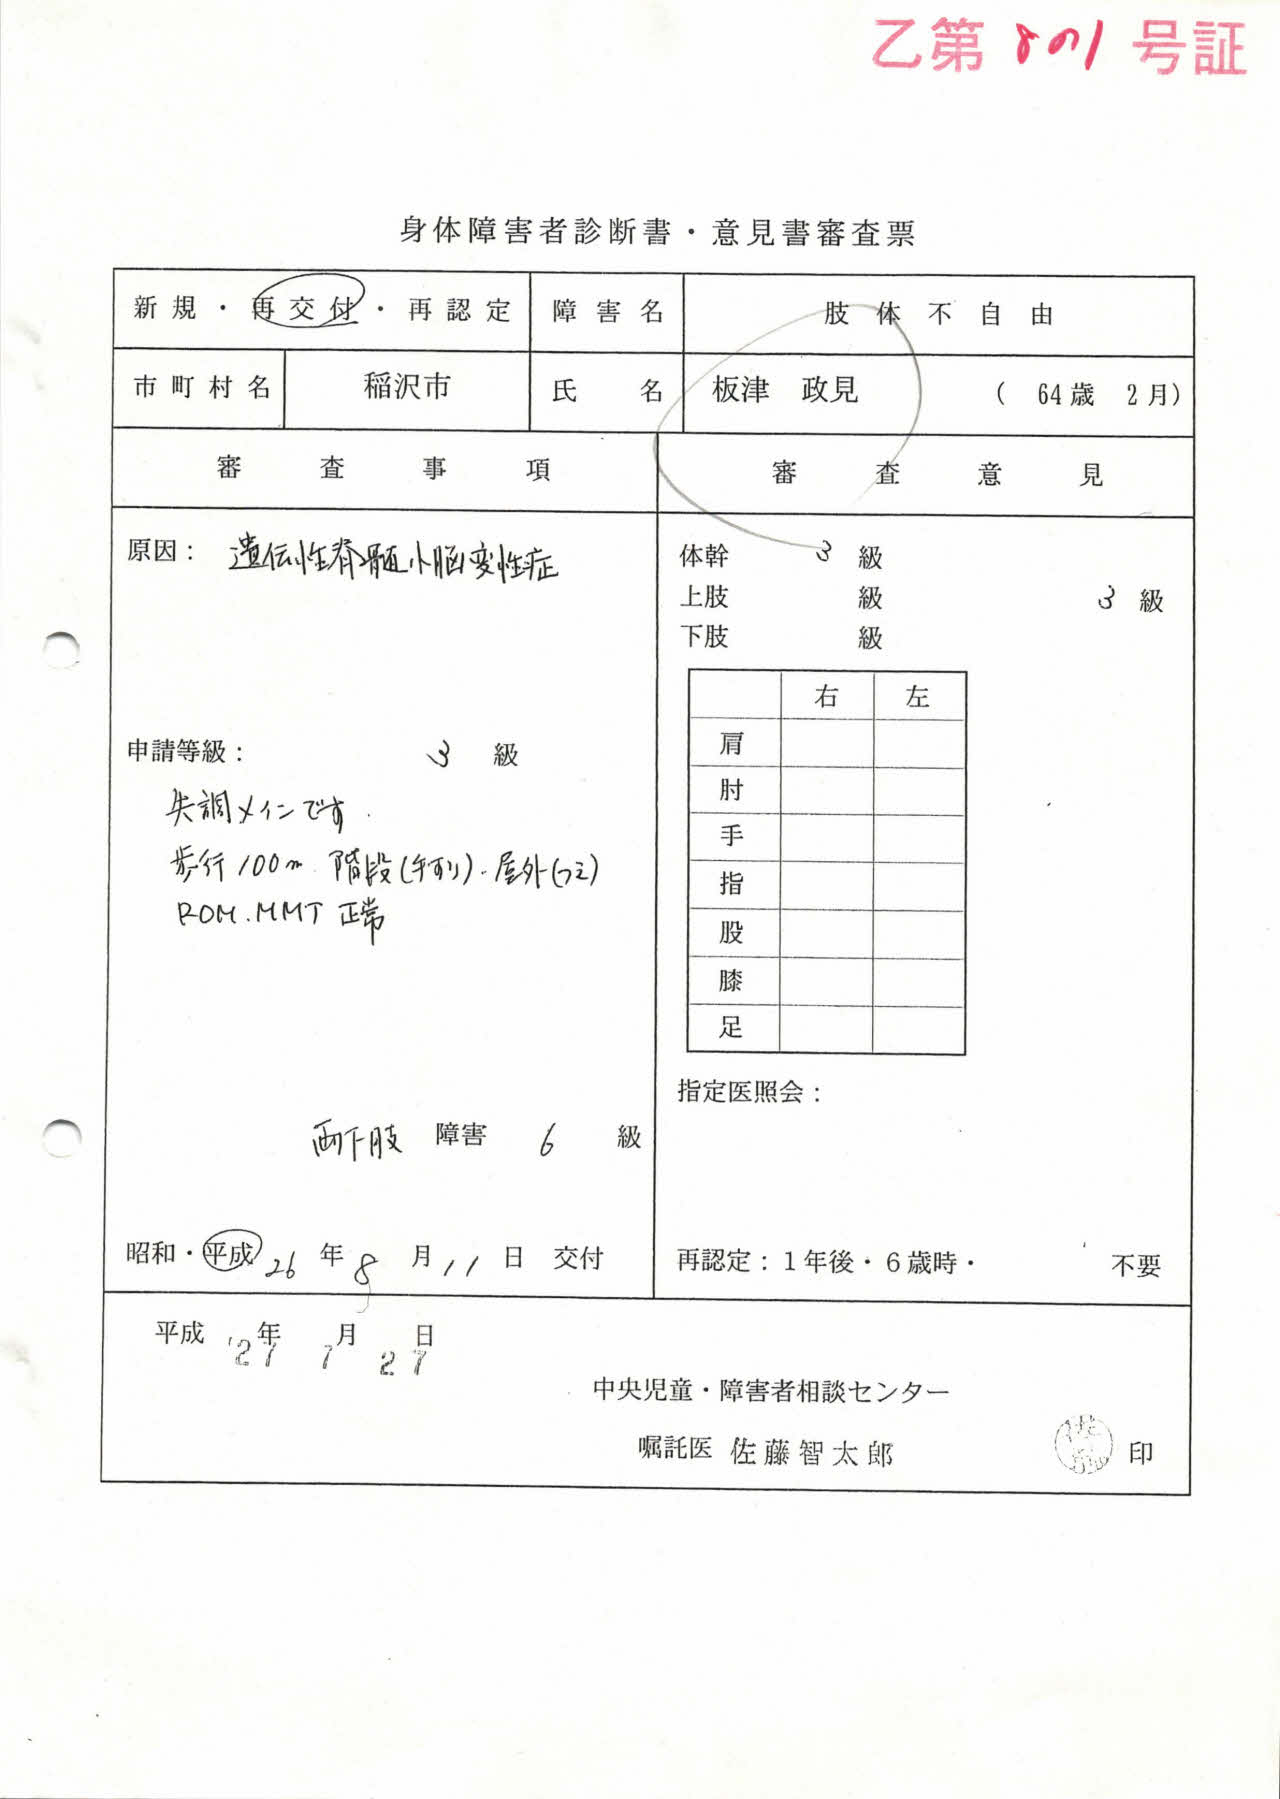 乙第 8の1 号証
身体障害者診断書・意見書審査票
新規・再交付・再認定 障害名 肢体不自由
市町村名 稲沢市 氏名 板津 政見 ( 64歳 2月)
審査事項 審査意見
原因: 遺伝性脊髄小脳変性症
体幹 3 級
上肢 級 3 級
下肢 級
右 左
肩
肘
手
指
股
膝
足
申請等級: 3 級
失調メインです.
歩行100m. 階段(手すり). 屋外(つえ)
ROM.MMT 正常
指定医照会:
両下肢 障害 6 級
昭和・平成 26 年 8 月 11 日 交付
再認定:1年後・6歳時・ 不要
平成 '27年 7月 27日
中央児童・障害者相談センター
嘱託医 佐藤智太郎 印